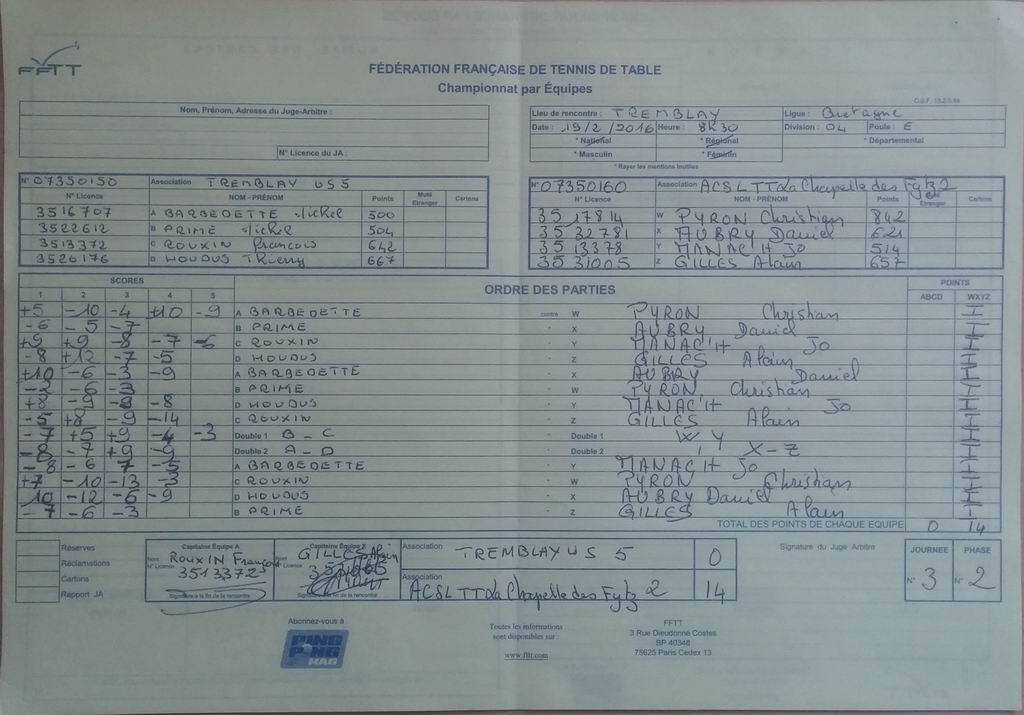 FFTT
FÉDÉRATION FRANÇAISE DE TENNIS DE TABLE
Championnat par Équipes
Nom, Prénom, Adresse du Juge-Arbitre :
N° Licence du JA :
Lieu de rencontre : TREMBLAY Ligue : Bretagne
Date : 19/2/2016 Heure : 8h30 Division : 04 Poule : E
* National * Régional * Départemental
* Masculin * Féminin
* Rayer les mentions inutiles
N° 07350150 Association TREMBLAY US 5
N° Licence NOM - PRÉNOM Points Muté Etranger Cartons
3516707 A BARBEDETTE Michel 500
3522612 B PRIME Michel 504
3513372 C ROUXIN François 642
3526176 D HOUDUS Thierry 667
N° 07350160 Association ACSL TT La Chapelle des Fgtz 2
N° Licence NOM - PRÉNOM Points Etranger Cartons
35 17814 W PYRON Christian 842
35 32781 X AUBRY Daniel 621
35 13378 Y MANAC'H Jo 514
35 31005 Z GILLES Alain 657
SCORES ORDRE DES PARTIES POINTS
1 2 3 4 5 ABCD WXYZ
+5 -10 -4 +10 -9 A BARBEDETTE contre W PYRON Christian
-6 -5 -7 B PRIME X AUBRY Daniel
+9 +9 -8 -7 -6 C ROUXIN Y MANAC'H Jo
-8 +12 -7 -5 D HOUDUS Z GILLES Alain
+10 -6 -3 -9 A BARBEDETTE X AUBRY Daniel
-6 -3 B PRIME W PYRON Christian
+8 -9 -8 -8 D HOUDUS Y MANAC'H Jo
-5 +8 -9 -14 C ROUXIN Z GILLES Alain
-7 +5 +9 -4 -3 Double 1 B - C Double 1 W Y
-8 -7 +9 -9 Double 2 A - D Double 2 X - Z
-8 -6 7 -5 A BARBEDETTE Y MANAC'H Jo
+7 -10 -13 -3 C ROUXIN W PYRON Christian
10 -12 -6 -9 D HOUDUS X AUBRY Daniel
-7 -6 -3 B PRIME Z GILLES Alain
TOTAL DES POINTS DE CHAQUE EQUIPE 0 14
Réserves
Réclamations
Cartons
Rapport JA
Capitaine Equipe A
Nom ROUXIN François
N° Licence 3513372
Signature à la fin de la rencontre
Capitaine Equipe X
Nom GILLES Alain
N° Licence
Signature à la fin de la rencontre
Association TREMBLAY US 5 0
Association ACSL TT La Chapelle des Fgtz 2 14
Signature du Juge Arbitre
JOURNEE PHASE
N° 3 N° 2
Abonnez-vous à
PING PONG MAG
Toutes les informations
sont disponibles sur :
www.fftt.com
FFTT
3 Rue Dieudonné Costes
BP 40348
75625 Paris Cedex 13